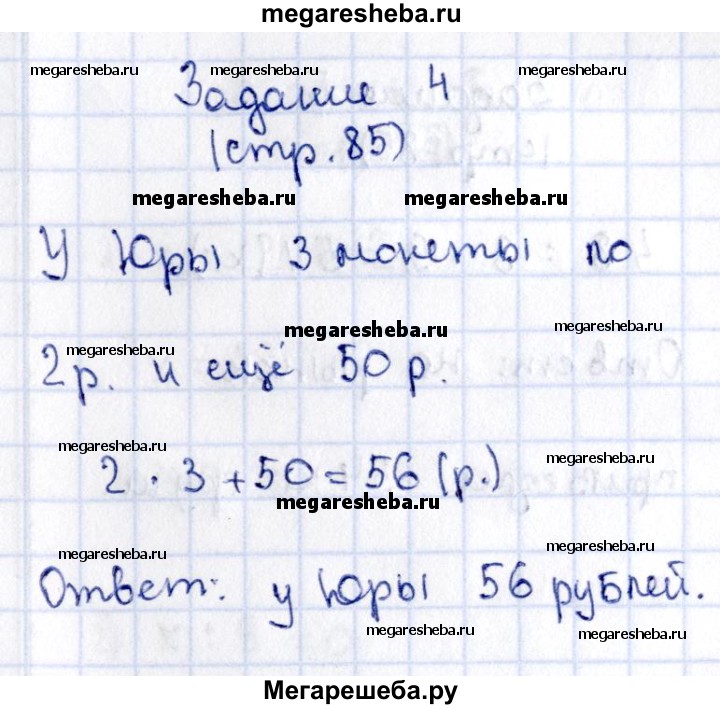 megaresheba.ru
megaresheba.ru megaresheba.ru megaresheba.ru
Задание 4
(стр. 85)
megaresheba.ru megaresheba.ru
У Юры 3 монеты по
megaresheba.ru megaresheba.ru
megaresheba.ru
2 р. и ещё 50 р.
megaresheba.ru megaresheba.ru
2 · 3 + 50 = 56 (р.)
megaresheba.ru
megaresheba.ru megaresheba.ru
Ответ: у Юры 56 рублей.
megaresheba.ru megaresheba.ru
Мегарешеба.ру